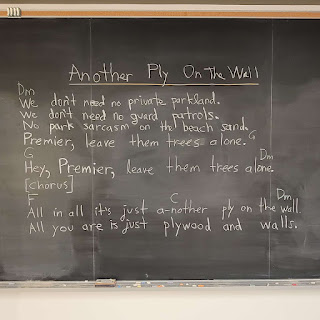 Another Ply On The Wall
Dm
We don't need no private parkland.
We don't need no guard patrols.
No park sarcasm on the beach sand.
Premier, leave them trees alone. G
G Dm
Hey, Premier, leave them trees alone.
[chorus]
F C Dm
All in all it's just a-nother ply on the wall.
All you are is just plywood and walls.